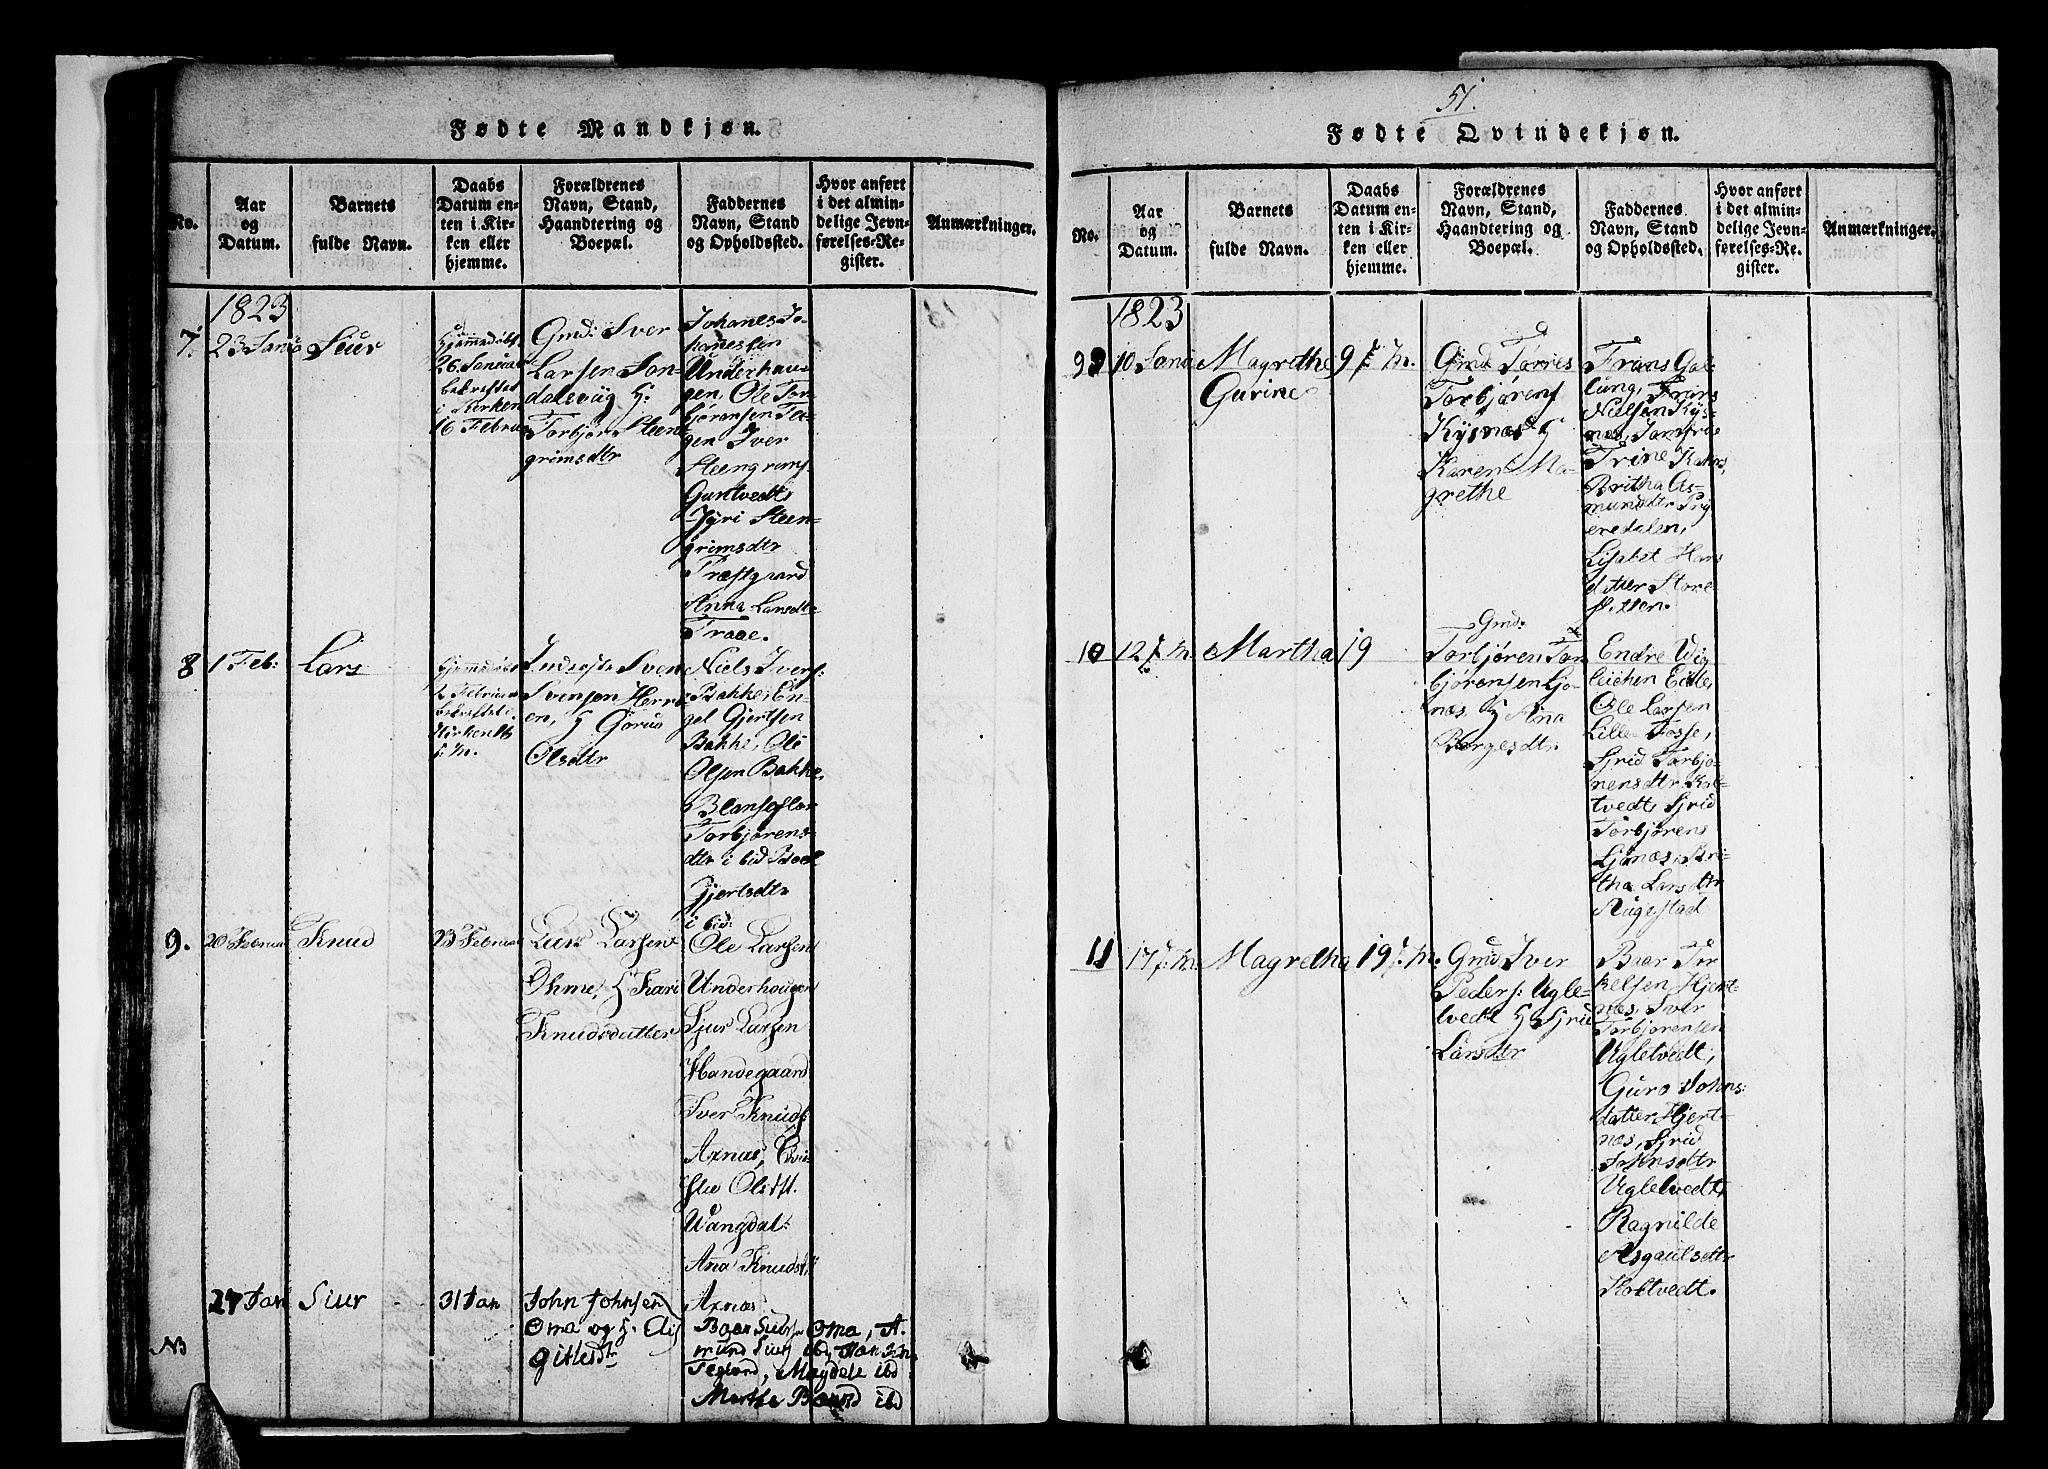 Fødte Mandkjøn.
No.
Aar
og
Datum.
Barnets
fulde Navn.
Daabs
Datum en-
ten i Kir-
ken eller
hjemme.
Forældrenes
Navn, Stand,
Haandtering og
Boepæl.
Faddernes
Navn, Stand
og Opholdssted.
Hvor anført
i det almin-
delige Jevn-
førelses-Re-
gister.
Anmærkninger.
1823
7.
23 Janu
Siur
Hjemmedøbt
26 Januar
bekræftet
i Kirken
16 Februar
Gmd: Iver
Larsen
H:
Torbjør Steen
grimsdtr
Johanes Jo-
hanessen
Underhau-
gen, Ole Tor-
bjørensen
gen Iver
Steengrims
Guntvedt
Jyri Steen-
grimsdtr
Præstgaard
Anna Larsdtr
Traae.
8
1 Feb:
Lars
Hjemdøbt
2 Februar
bekræftet i
Kirken
Inderste Sven
Svensen
en, H Goruo
Olsdtr
Niels Ivers:
Bakke, En-
gel Gjertsen
Bakke, Ole
Olsen Bakke,
Blanseflor
Torbjørens-
dtr i bid
Gjertsdtr
i bid:
9.
20 Februar
Knud
23 Februar
Lars Larsen
Ohme, H Kari
Knudsdatter
Ole Larsen
Underhaugen
Sjur Larsen
Mandegaard
Iver Knuds
Axnæs, Chri-
stie Olsdt.
Wangdal
Ana Knudsdt
Axnæs
NB
27 Jan
Siur
31 Jan
John Johnsen
Oma og H.
Gitlesdtr
Baar Siurs: Oma, A-
mund Siurs ibd, Jan
Tegland, Magdele ibd
Marthe Baard ibd
51.
Fødte Qvindekjøn.
No.
Aar
og
Datum.
Barnets
fulde Navn.
Daabs
Datum en-
ten i Kir-
ken eller
hjemme.
Forældrenes
Navn, Stand,
Haandtering og
Boepæl.
Faddernes
Navn, Stand
og Opholdssted.
Hvor anført
i det almin-
delige Jevn-
førelses-Re-
gister.
Anmærkninger.
1823
9
10 Janu
Magrethe
Gurine
9 f: M.
Gmd Tørres
Torbjørens
Kysnæs H
Karen Ma-
grethe
Frans Gal-
tung,
Nielsen Kys-
næs, Jomfrue
Trine Rahm,
Britha As-
mundsdtr
eredalen,
Lisabet Hans
datter Store
10
12 f: M
Martha
19
Gmd:
Torbjøren Tor
bjørensen Ljo-
næs H Ana
Børgesdtr
Endre Vig
leichen Eide,
Ole Larsen
Lille Fosse,
Sjrid Torbjø-
rensdtr Kol-
tvedt, Sjrid
Torbjørens
Ljonæs, Bri-
tha Larsdtr
Augestad
11
17 f: M
Magretha
19 f: M.
Gmd Iver
Peders: Ugle-
tvedt H Sjrid
Larsdtr
Baar Tor-
kelsen Hjert-
næs, Iver
Torbjørensen
Ugletvedt,
Guro Johns:
datter Hjert-
næs, Sjrid
Johnsdtr
Ugletvedt
Ragnilde
Asgautsdtr
Koltvedt.